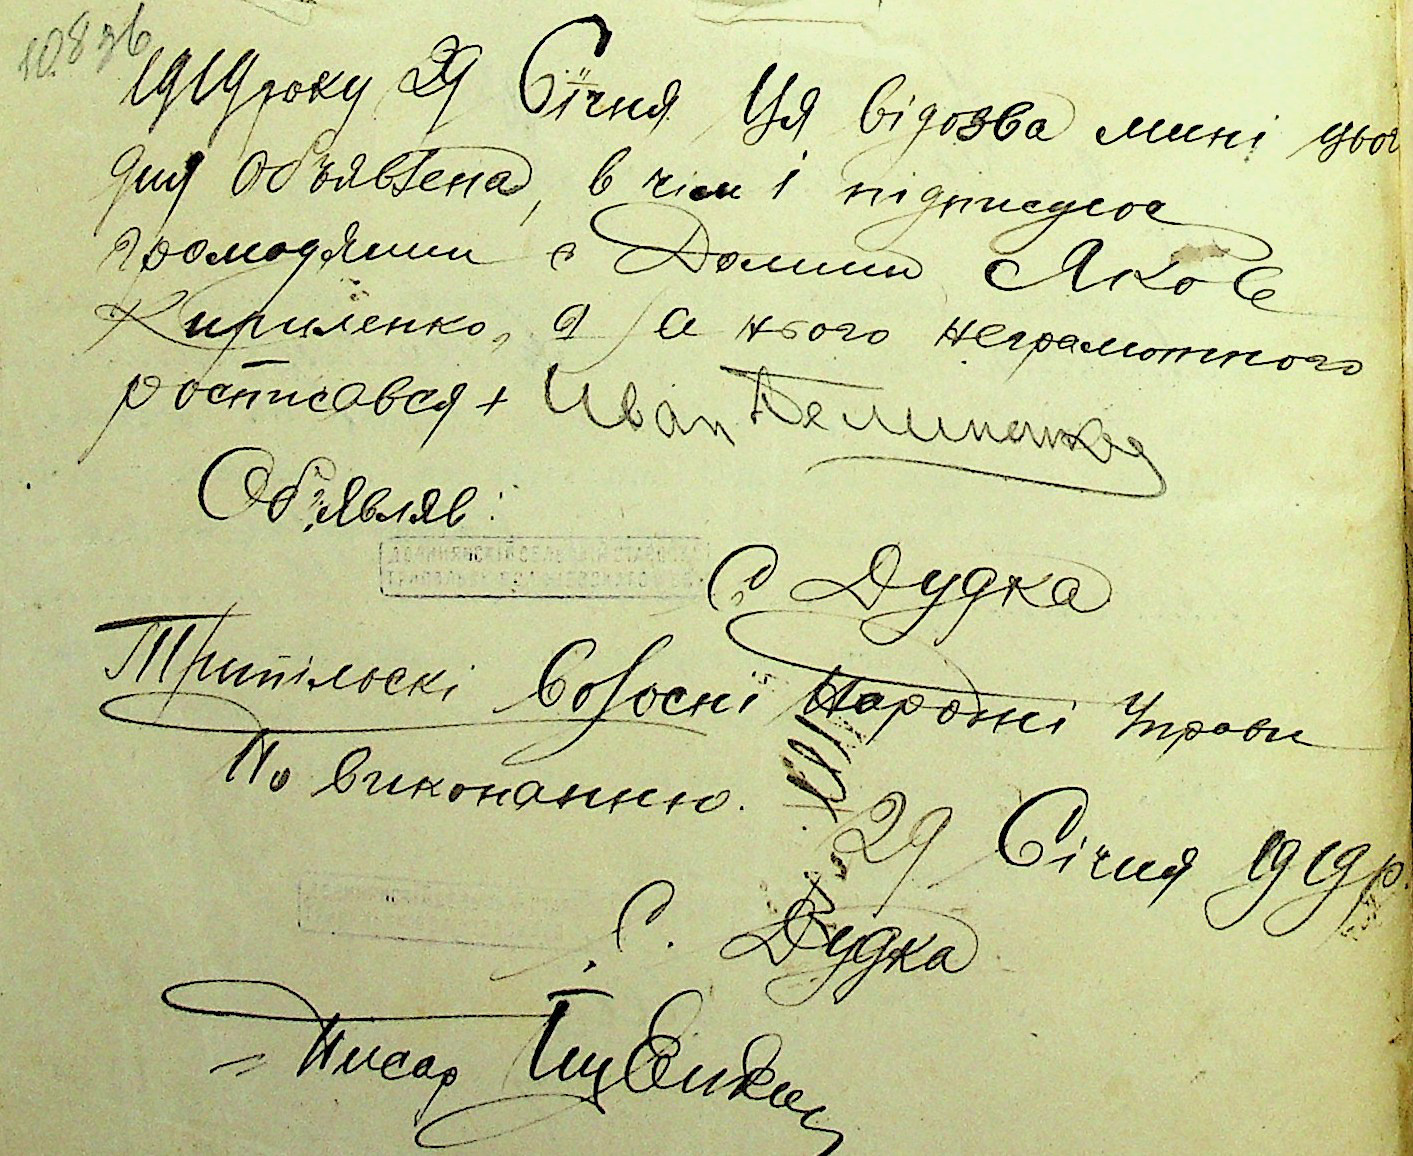 1919 року 29 Січня Ця відозва мині цього
дня Объявлена, в чім і підписуюс
громодянин с Долини Яков
Кириленко, а за нього неграмотного
росписався + Иван
Об'являв:
С. Дудка
Трипілоскі Волосні Народні Управи
По виконанню.
29 Січня 1919 р.
С. Дудка
Писар